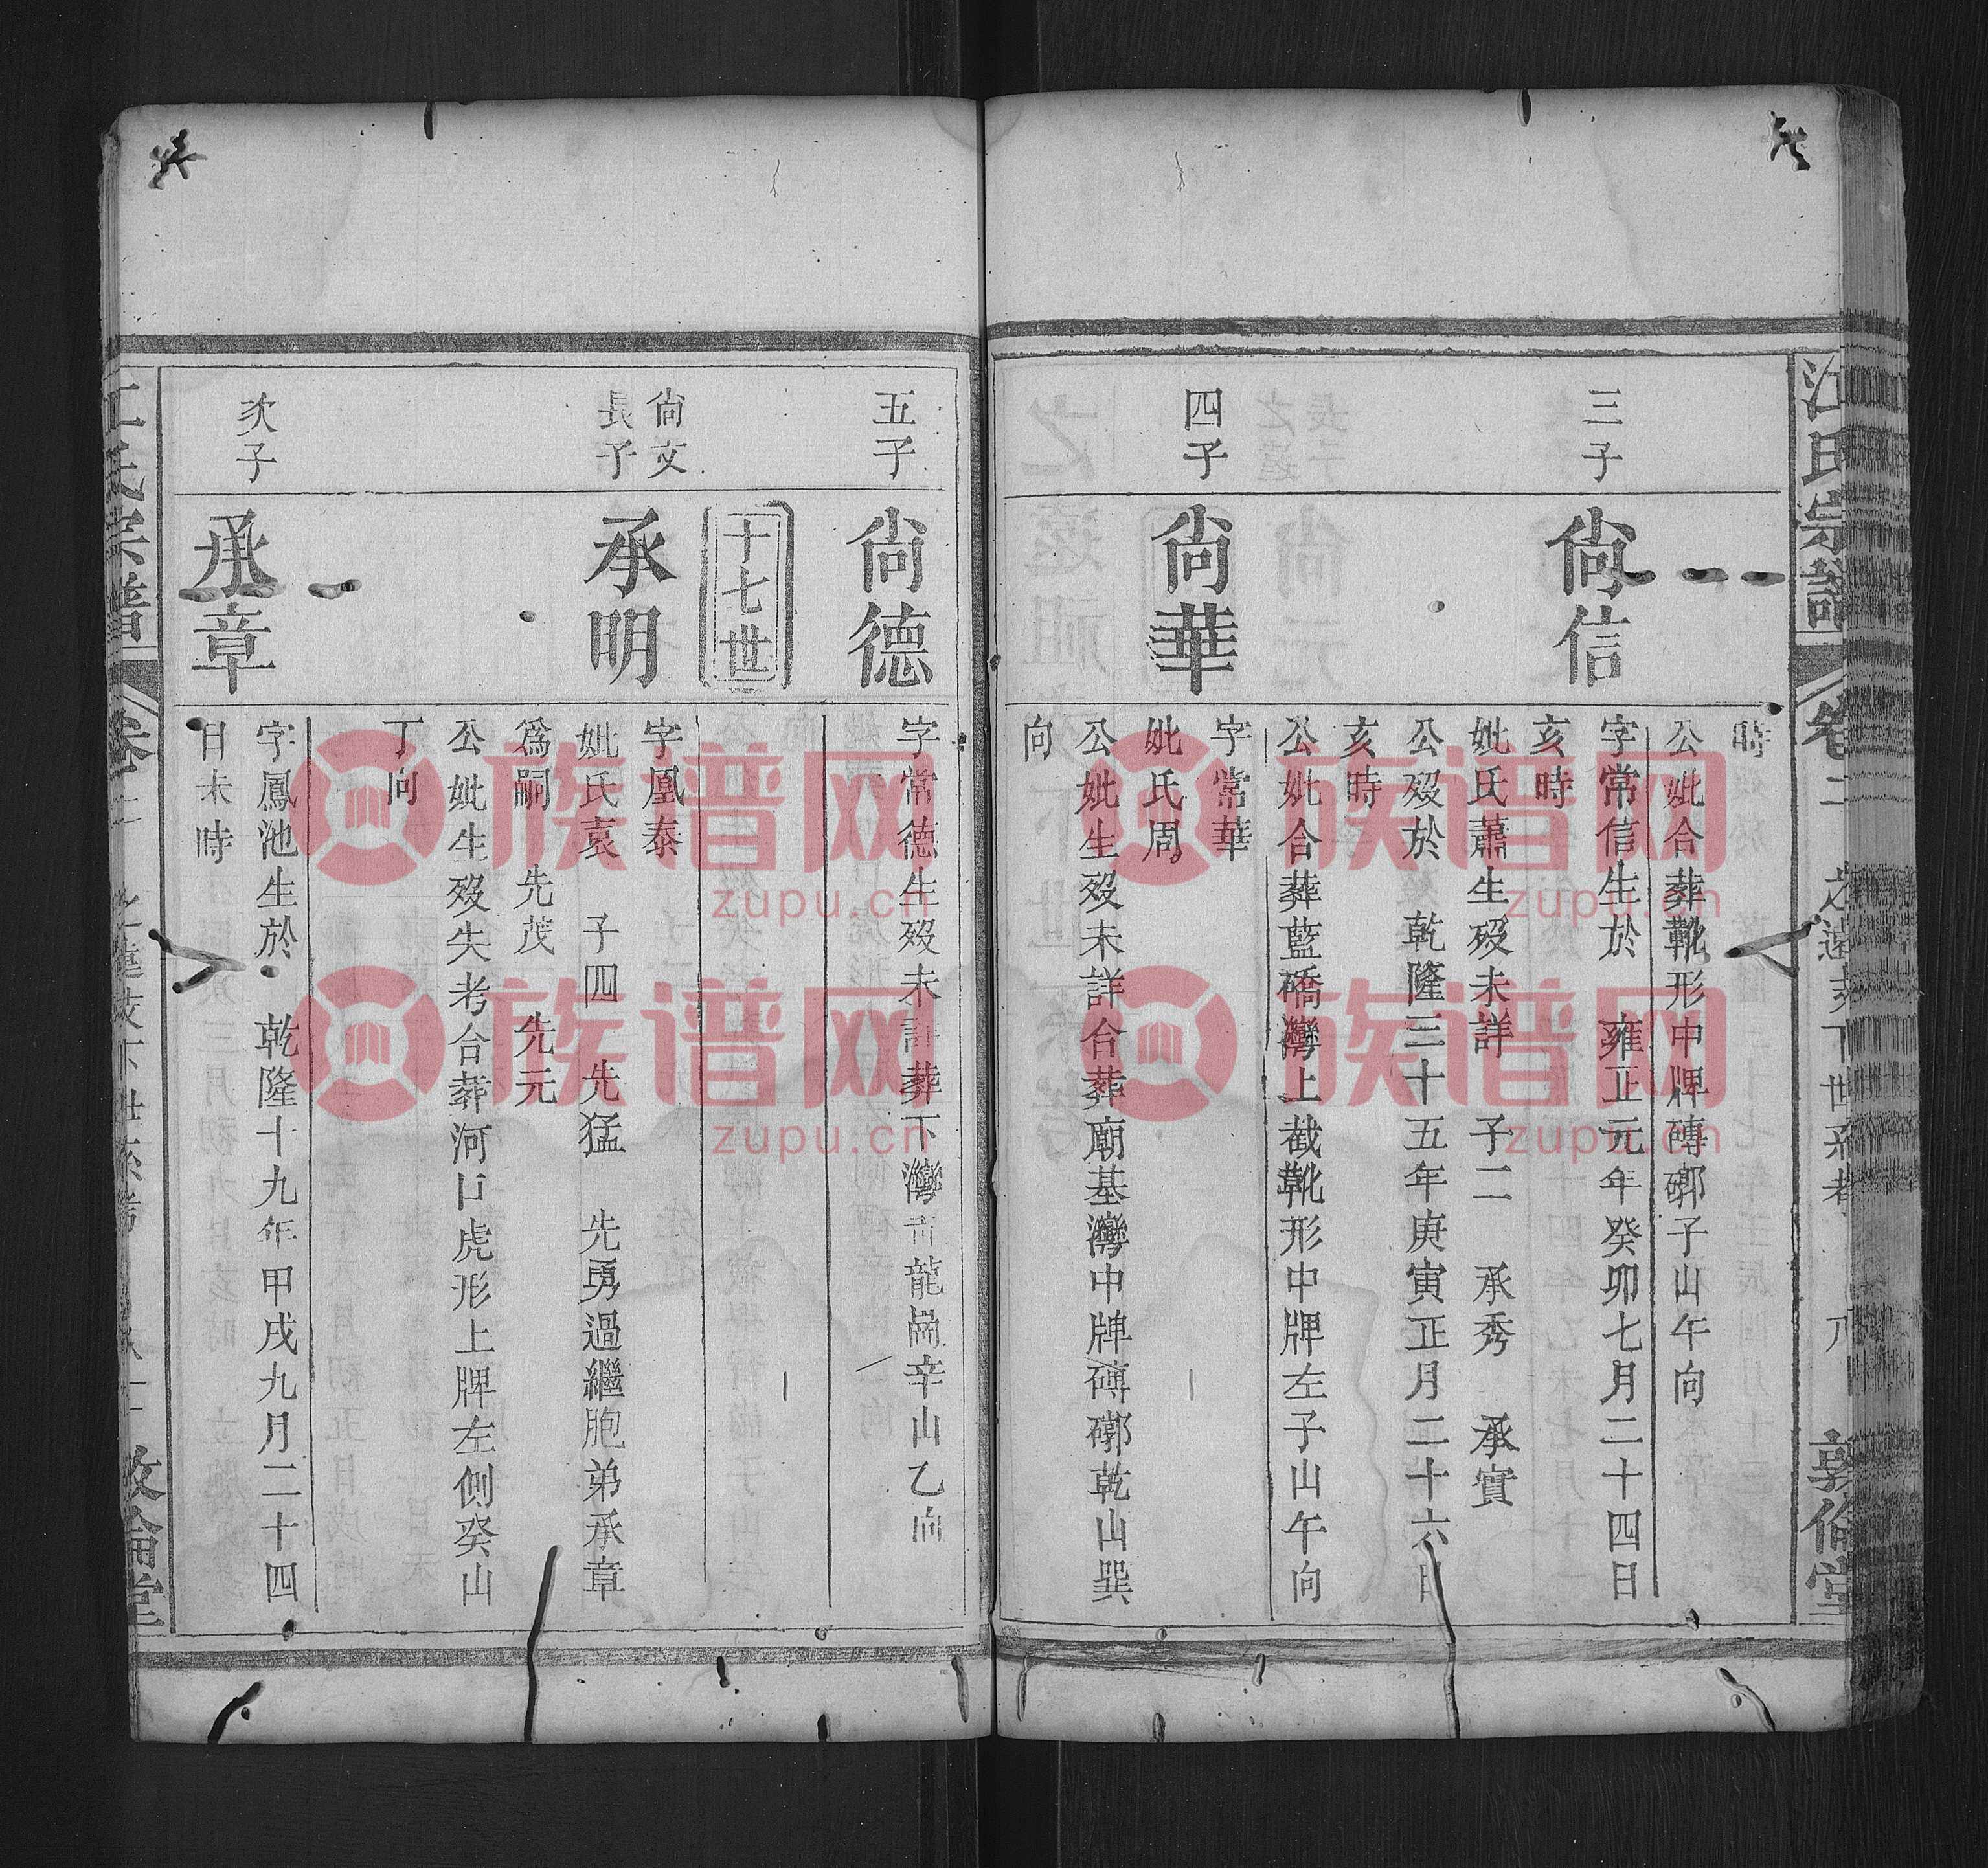 江氏宗譜
卷二 之遠支下世系考 八 敦倫堂
時
公妣合葬靴形中牌磚礤子山午向
三子
尙信
字常信生於 雍正元年癸卯七月二十四日
亥時
妣氏蕭生歿未詳 子二 承秀 承實
公歿於 乾隆三十五年庚寅正月二十六日
亥時
公妣合葬藍礄灣上截靴形中牌左子山午向
四子
尙華
字常華
妣氏周
公妣生歿未詳合葬廟基灣中牌磚礤乾山巽
向
五子
尙德
字常德生歿未詳葬下灣青龍崗辛山乙向
十七世
尙文
長子
承明
字凰泰
妣氏袁 子四 先猛 先勇過繼胞弟承章
爲嗣 先茂 先元
公妣生歿失考合葬河口虎形上牌左側癸山
丁向
次子
承章
字鳳池生於 乾隆十九年甲戌九月二十四
日未時
江氏宗譜
族谱网
zupu.cn
族谱网
zupu.cn
族谱网
zupu.cn
族谱网
zupu.cn